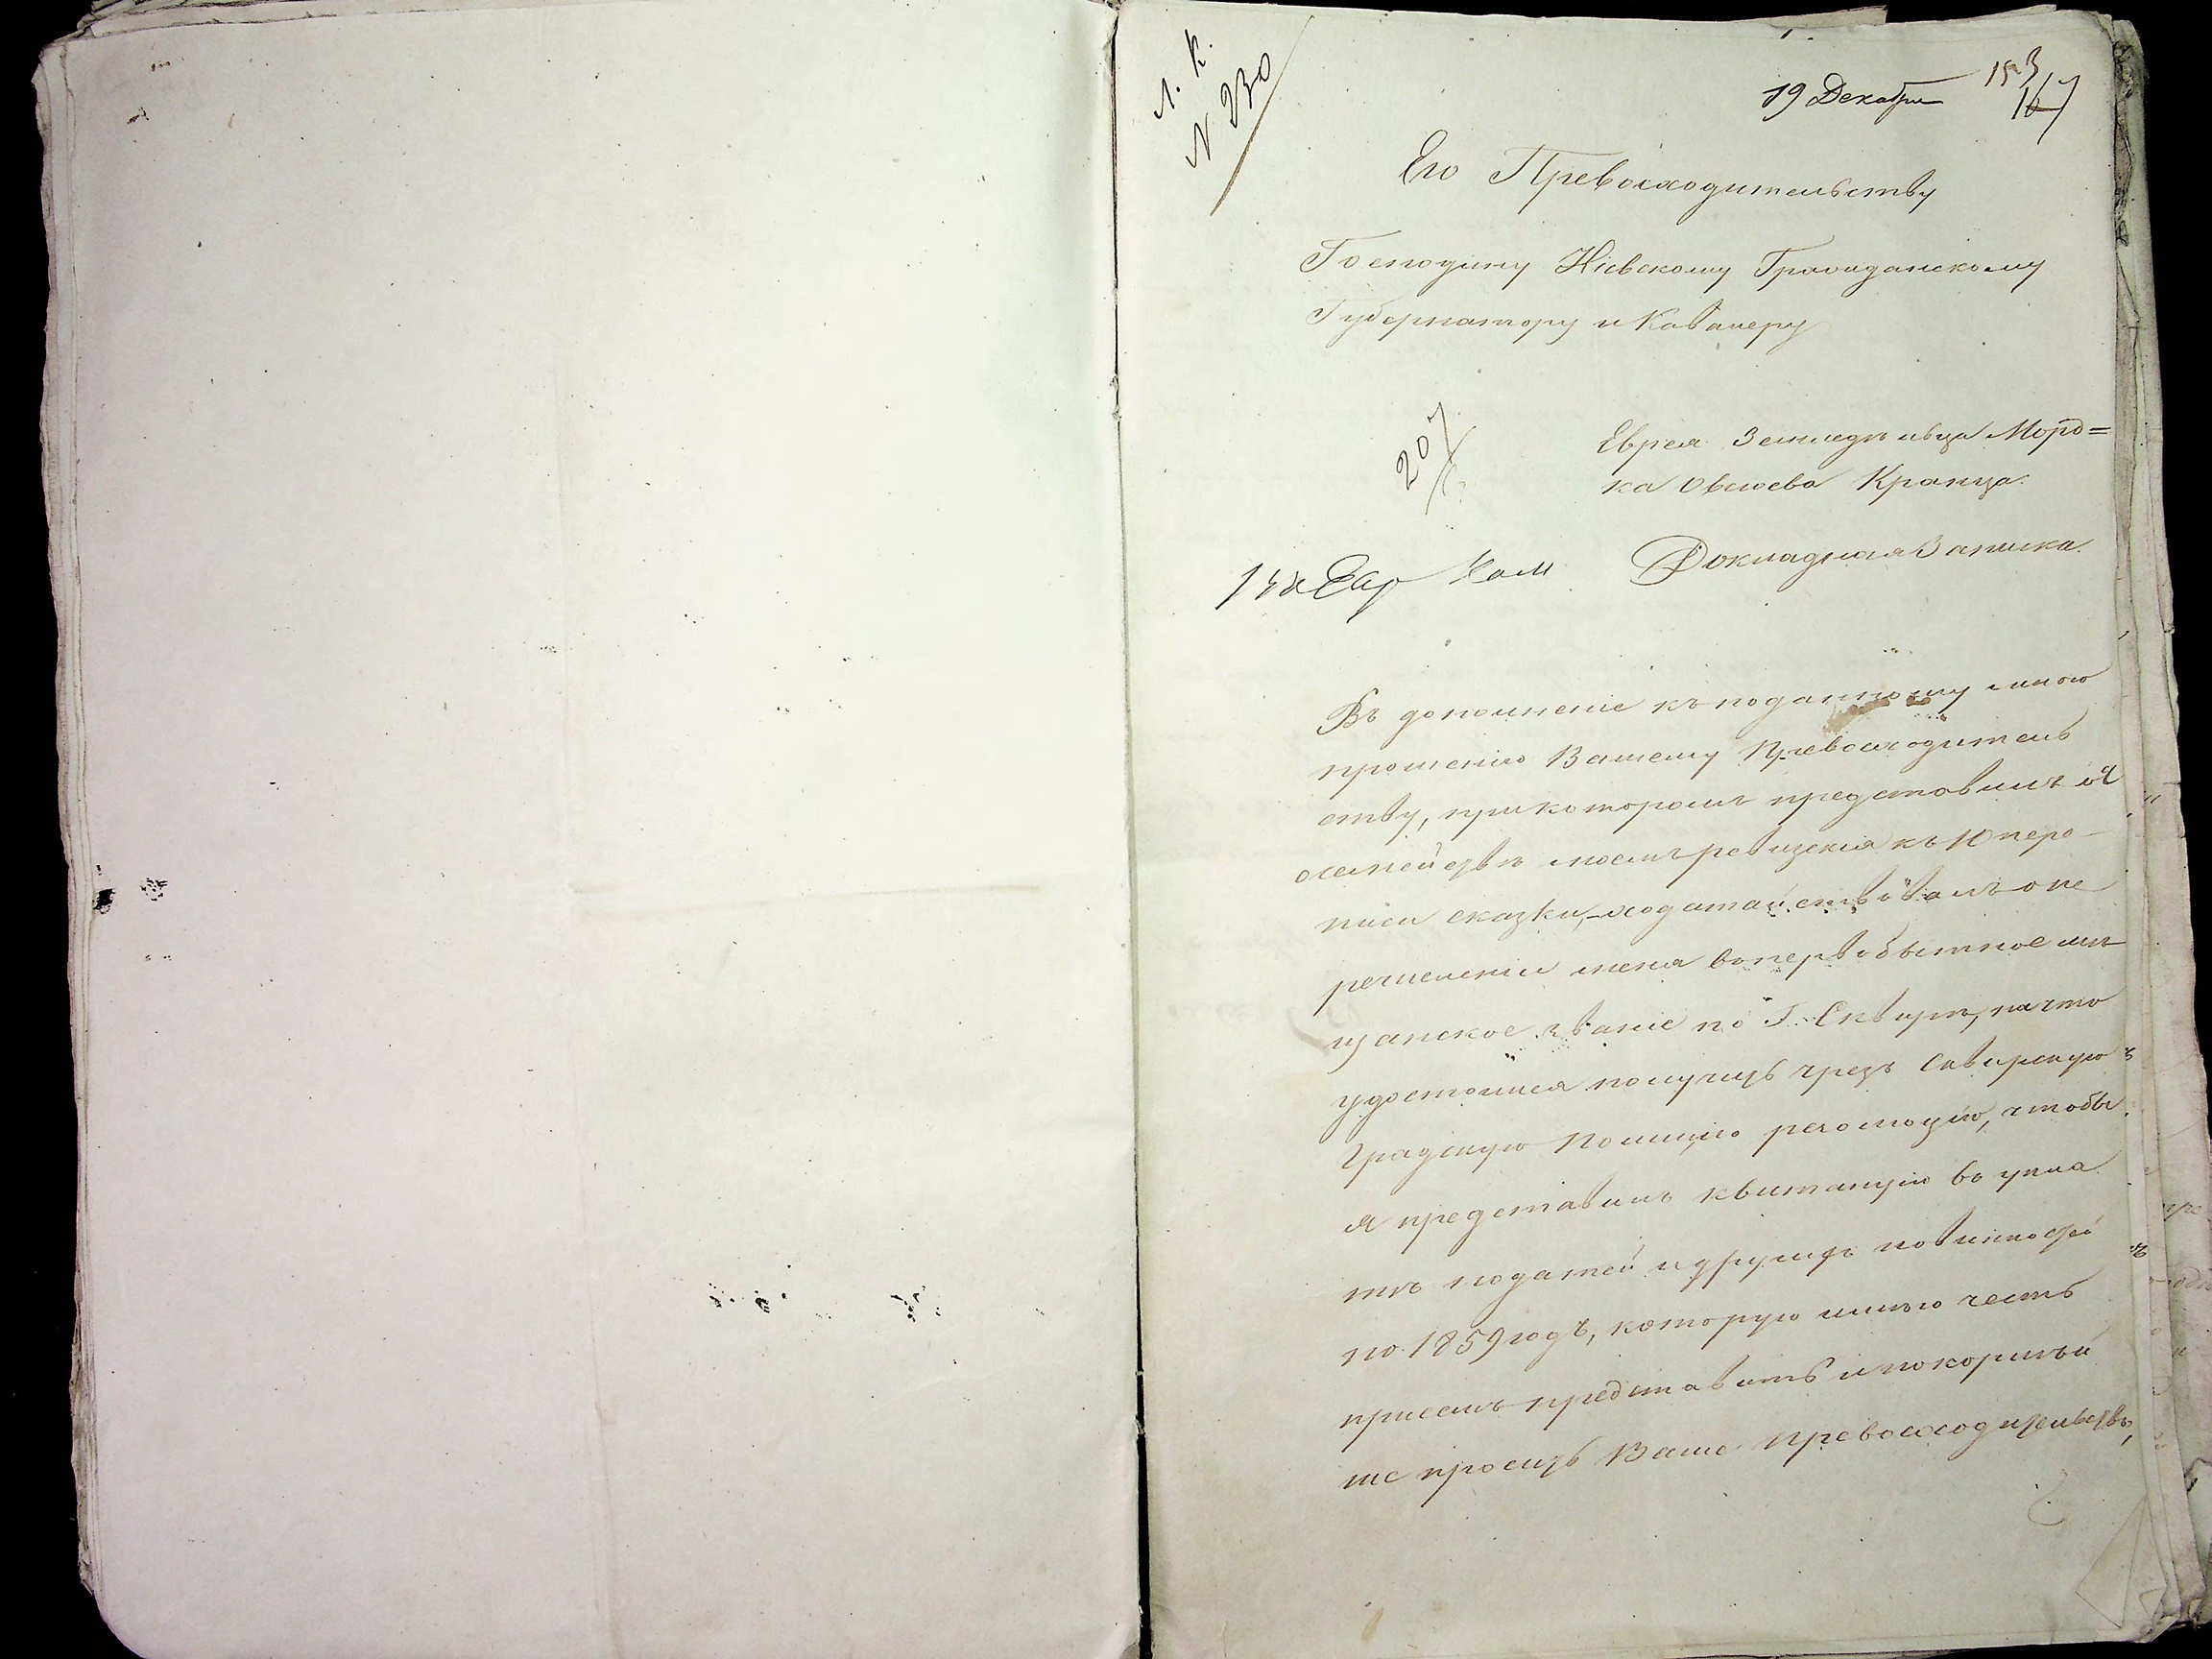 Л. К.
N 230
19 Декабря
153
167
Его Превосходительству
Господину Кіевскому Гражданскому
Губернатору и Кавалеру
207
Еврея Земледѣльца Морд=
ка Овсіева Кранца.
Докладная Записка.
Въ дополненіе къ поданному мною
прошенію Вашему Превосходитель
ству, при которомъ представилъ я
о семействѣ моемъ ревизскія къ 10 пере-
писи сказки, ходатайствовалъ о пе
речисленіи меня въ первобытное мѣ
щанское званіе по Г. Сквирѣ, на что
удостоился получить чрезъ Сквирскую
Градскую Полицію резолюцію, чтобы
я представилъ квитанцію въ упла
тѣ податей и другихъ повинностей
по 1859 годъ, которую имѣю честь
присемъ представить и покорнѣй
ше просить Ваше Превосходительство,